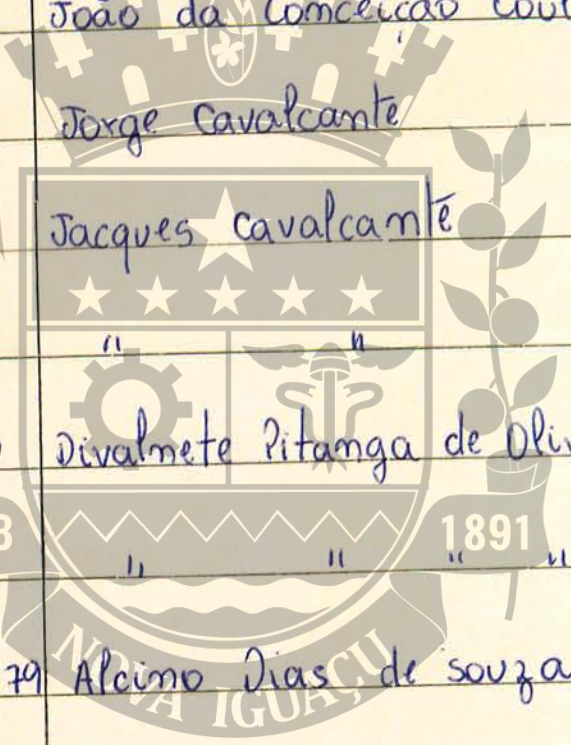 João da Conceição Cout
Jorge Cavalcante
Jacques Cavalcante
" "
Divalnete Pitanga de Oliv
" " " "
3 1891
79 Alcino Dias de Souza
NOVA IGUAÇU